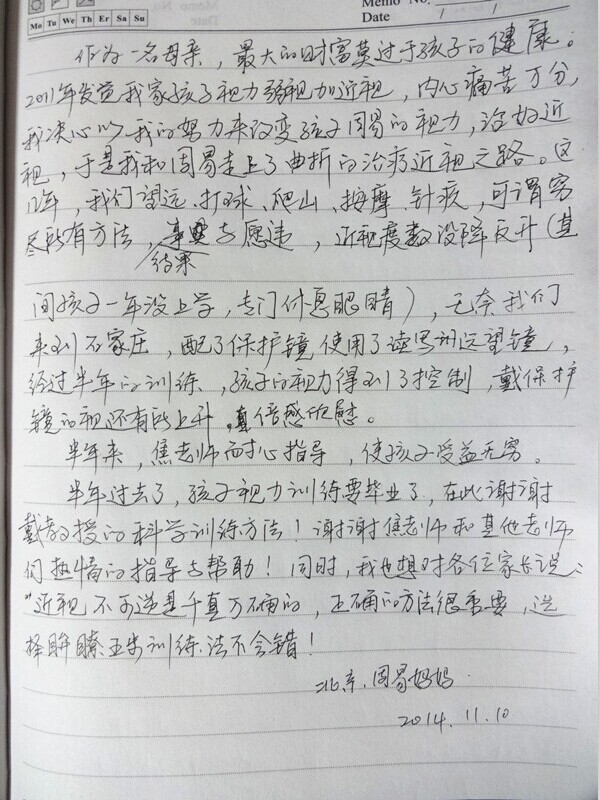 Memo No.
Mo Tu We Th Fr Sa Su
Date / /
作为一名母亲，最大的财富莫过于孩子的健康。
2011年发觉我家孩子视力弱视加近视，内心痛苦万分，
我决心以我的努力来改变孩子周易的视力，治好近
视，于是我和周易走上了曲折的治疗近视之路。这
几年，我们望远、打球、爬山、按摩、针灸，可谓穷
尽所有方法，结果与愿违，近视度数没降反升（其
间孩子一年没上学，专门休息眼睛），无奈我们
来到石家庄，配了保护镜使用了读写训远望镜，
经过半年的训练，孩子的视力得到了控制，戴保护
镜的视还有所上升，真倍感欣慰。
半年来，焦老师耐心指导，使孩子受益无穷。
半年过去了，孩子视力训练要毕业了，在此谢谢
戴教授的科学训练方法！谢谢焦老师和其他老师
们热情的指导与帮助！同时，我也想对各位家长说：
“近视不可逆是千真万确的，正确的方法很重要，选
择眸瞭五步训练法不会错！
北京，周易妈妈
2014.11.10